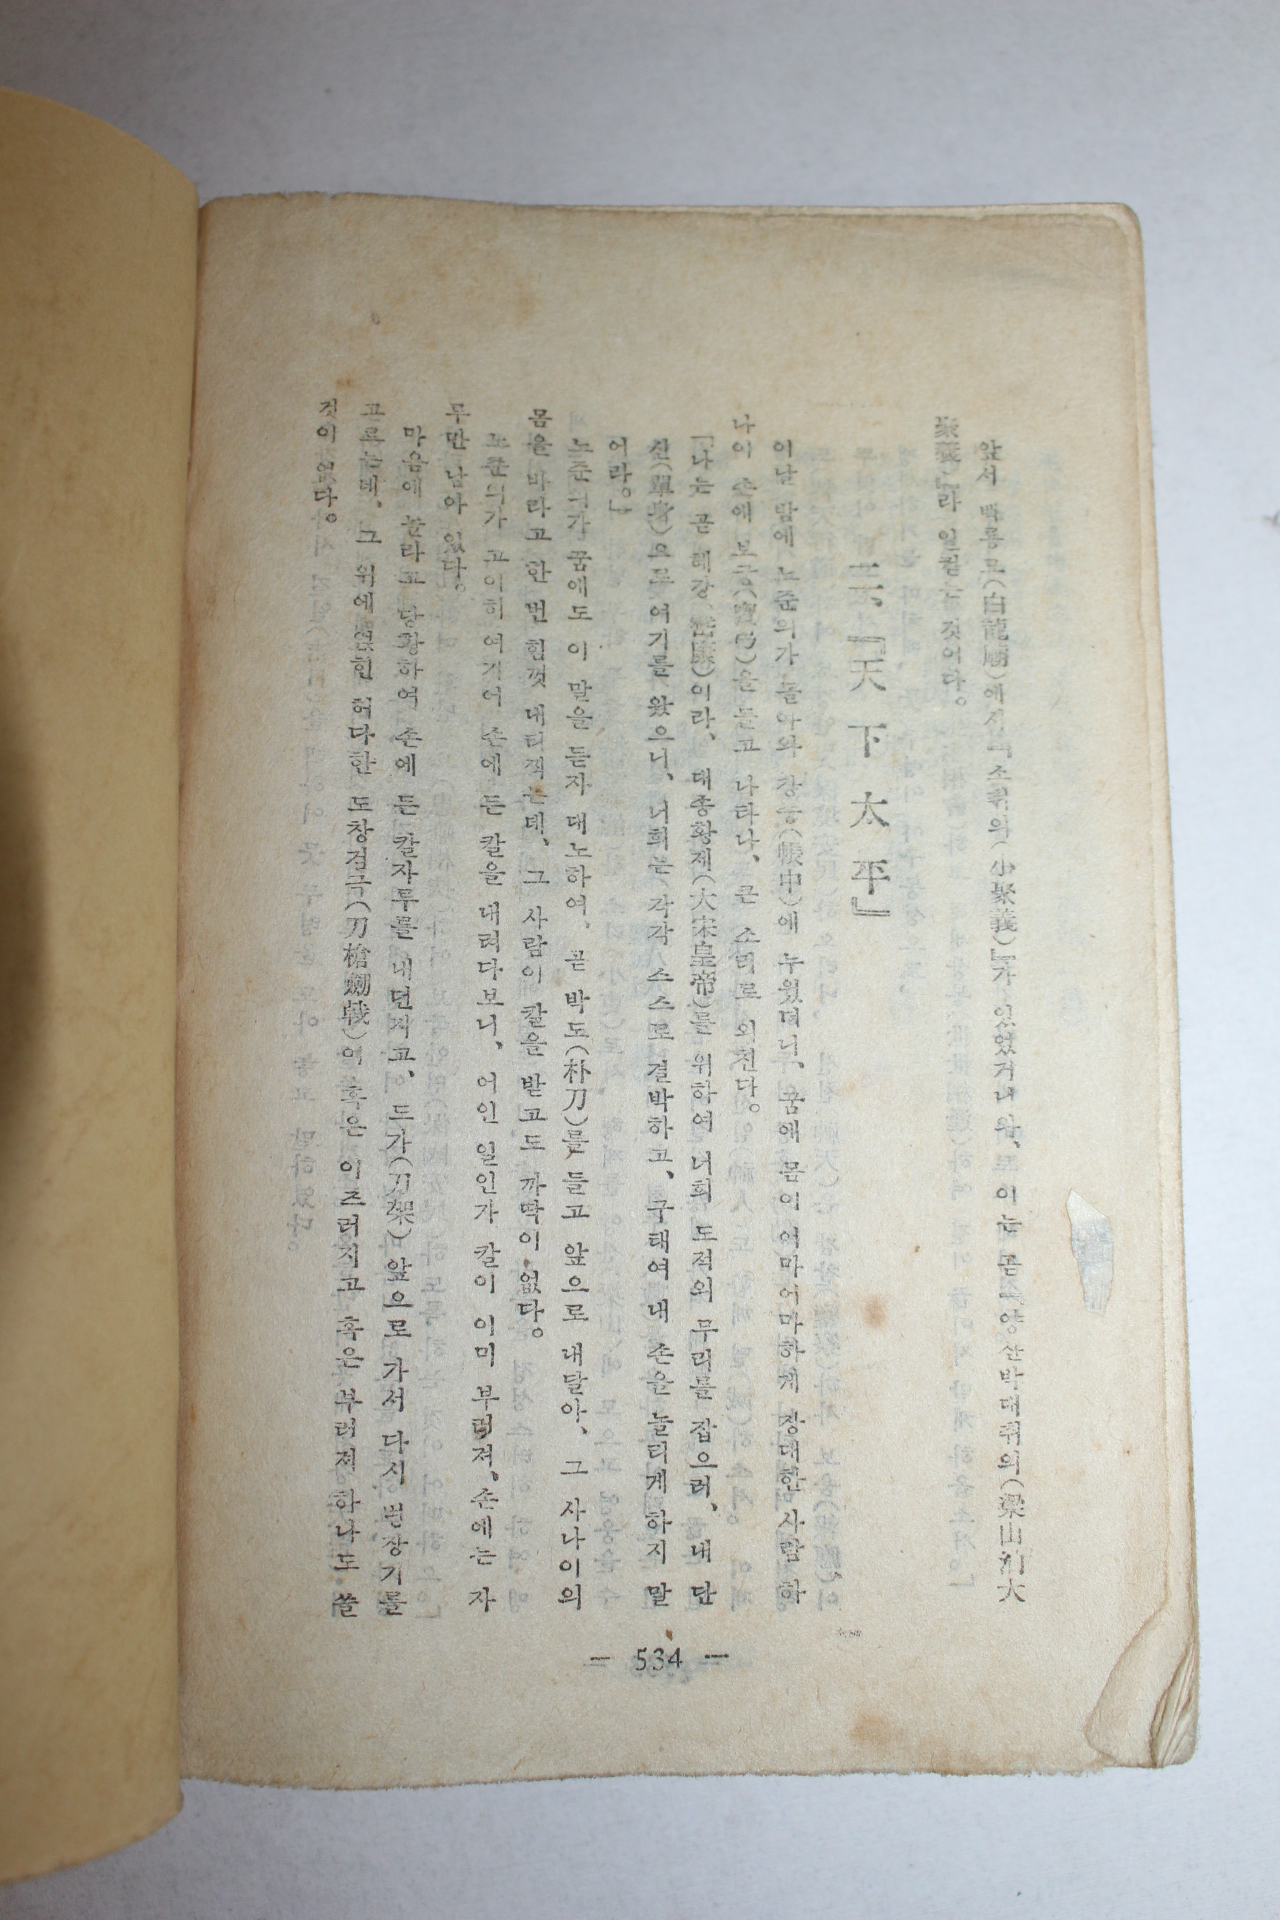 앞서 백룡묘(白龍廟)에서 『소취의(小聚義)』가 있었거니와, 이는 곧 『양산박대취의(梁山泊大
聚義)』라 일컫는 것이다.
三、『天下太平』
이날 밤에 노준의가 돌아와 장중(帳中)에 누웠더니、꿈에 몸이 어마어마하게 장대한 사람 하
나이 손에 보궁(寶弓)을 들고 나타나、큰 소리로 외친다。
「나는 곧 혜강(嵇康)이라、 대송황제(大宋皇帝)를 위하여 너희 도적의 무리를 잡으러、내 단
신(單身)으로 여기를 왔으니、너희는 각각 스스로 결박하고、구태여 내 손을 놀리게 하지 말
어라。」
노준의가 꿈에도 이 말을 듣자 대노하여、곧 박도(朴刀)를 들고 앞으로 내달아、그 사나이의
몸을 바라고 한 번 힘껏 내리찍는데、그 사람이 칼을 받고도 까딱이 없다。
노준의가 고이히 여기어 손에 든 칼을 내려다보니、어인 일인가 칼이 이미 부러져、손에는 자
루만 남아 있다。
마음에 놀라고 당황하여 손에 든 칼자루를 내던지고、도가(刀架) 앞으로 가서 다시 병장기를
고르는데、그 위에 얹힌 허다한 도창검극(刀槍劒戟)이 혹은 이즈러지고 혹은 부러져 하나도 쓸
것이 없다。
— 534 —